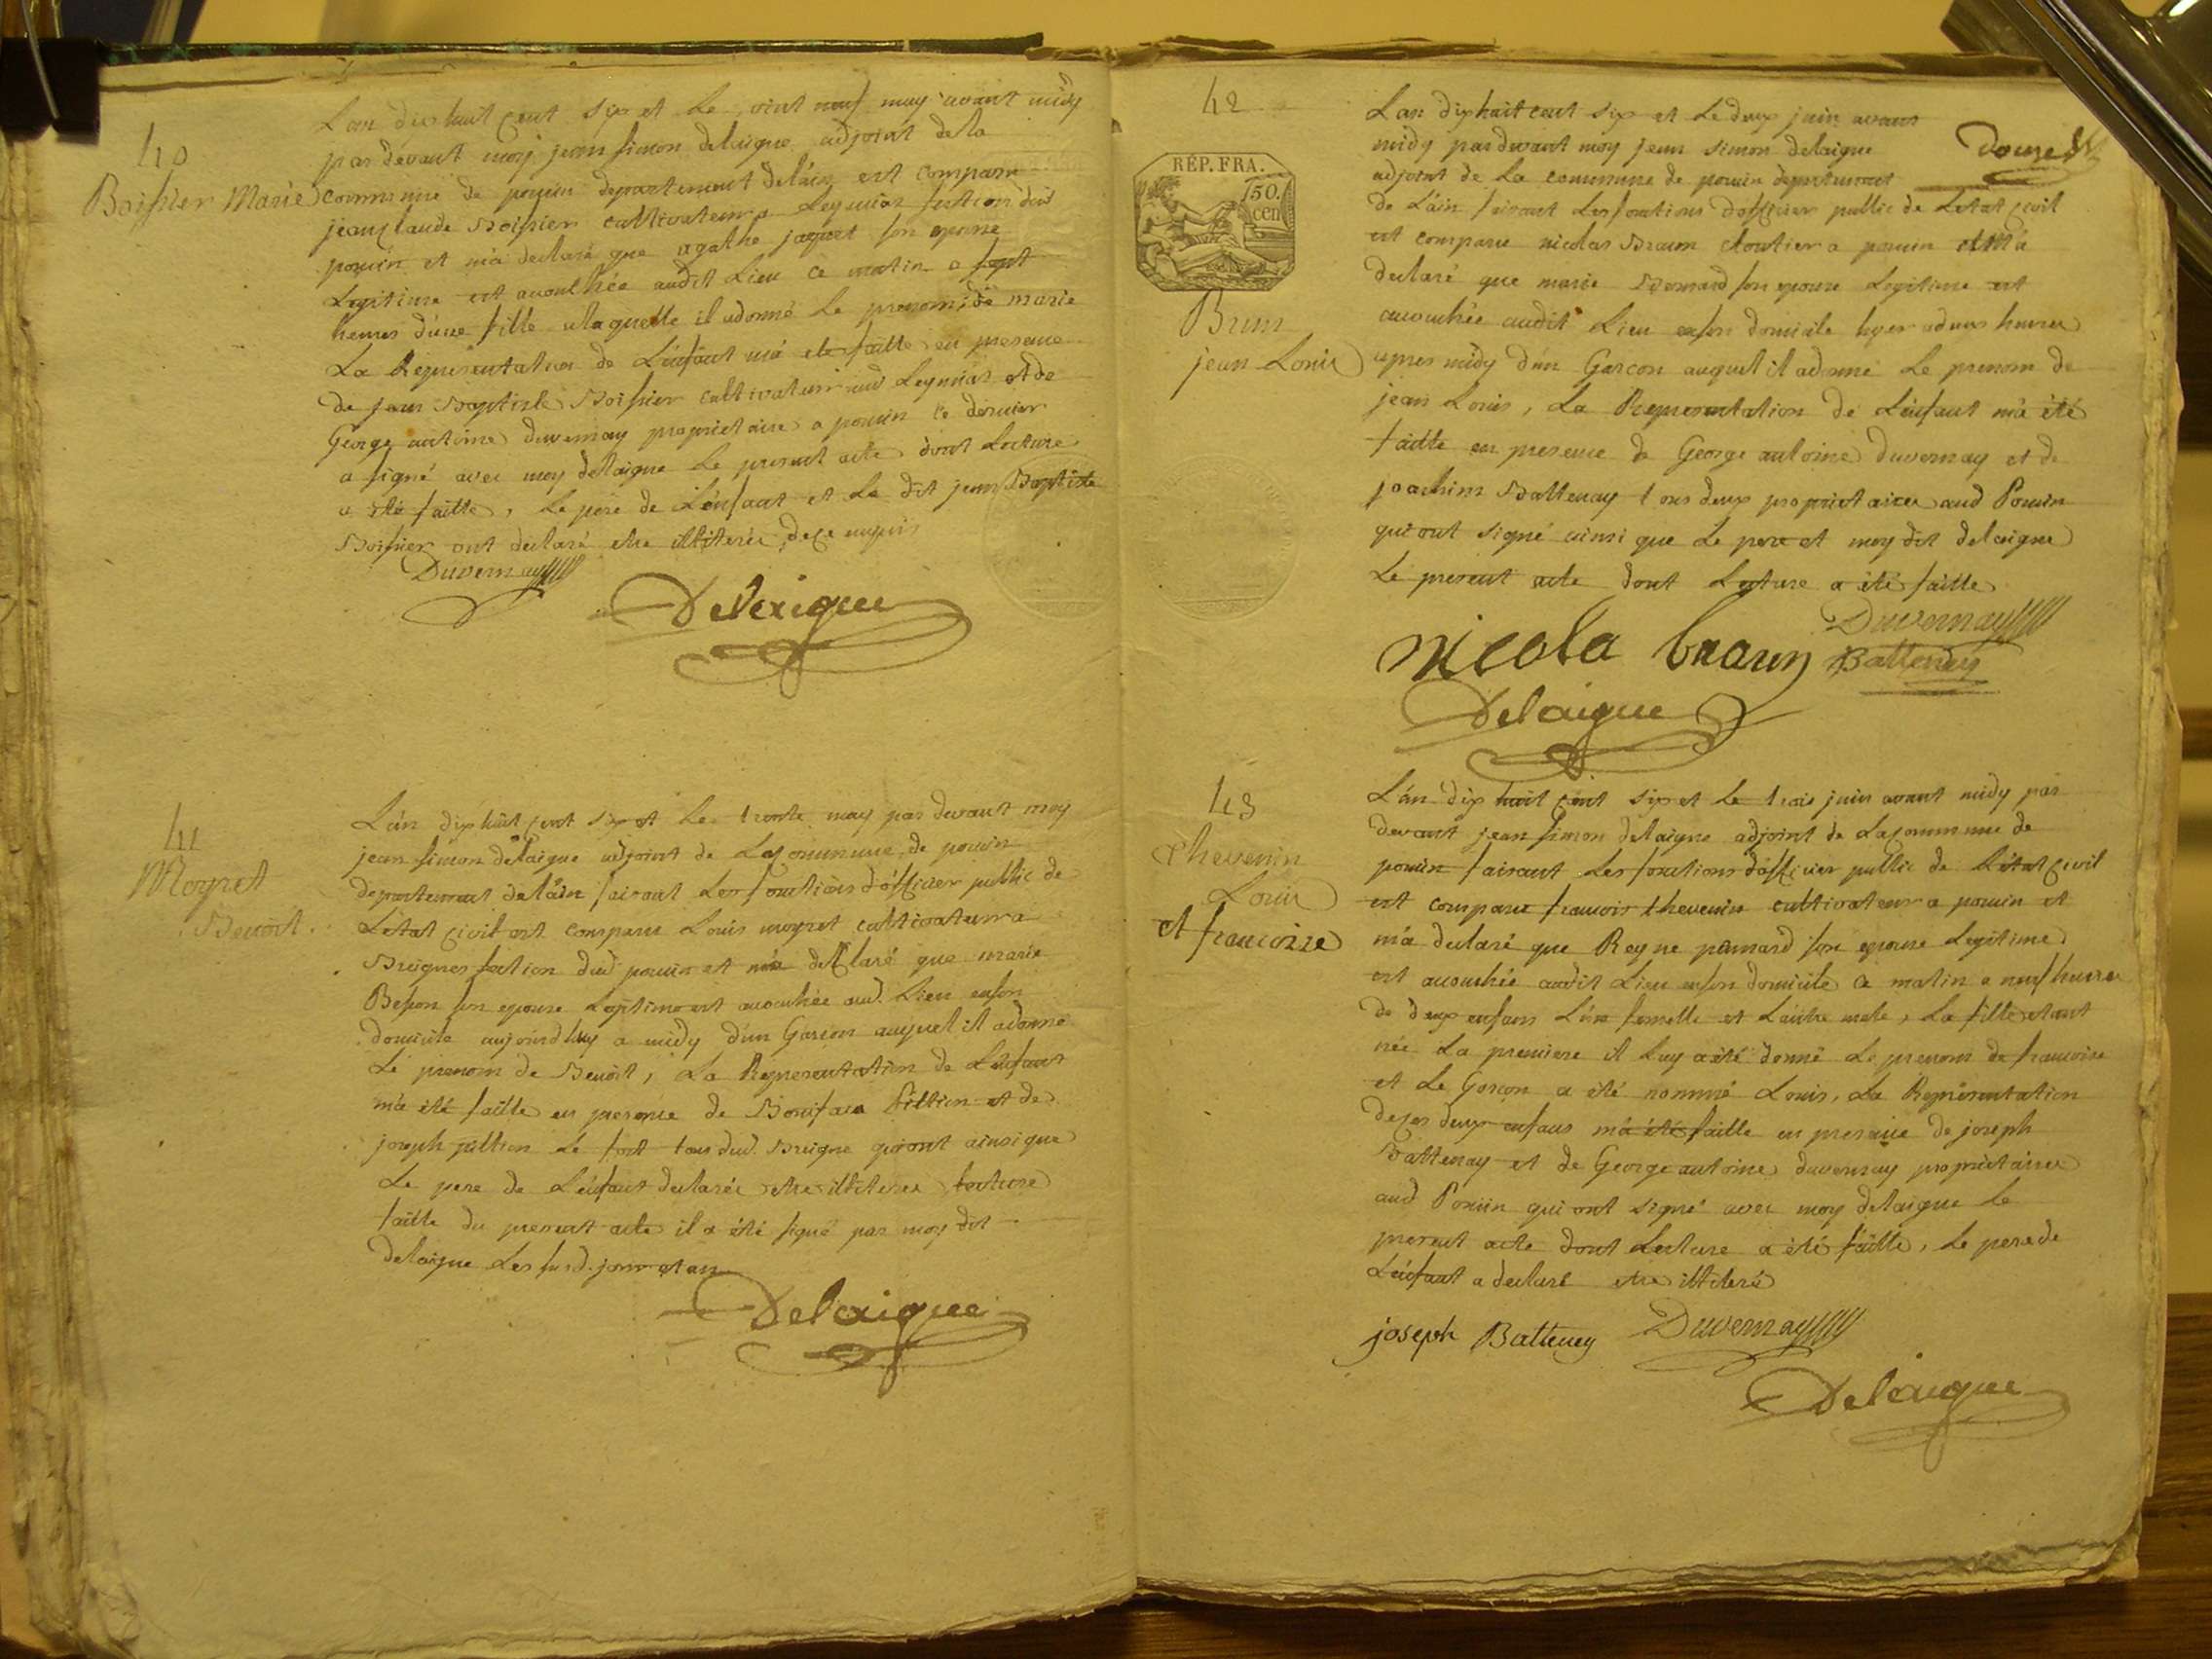 40
Boissier Marie
L'an dix huit cent six et le vint neuf may avant midy
par devant moy jean simon delaigue adjoint de la
commune de poncin departement delain est comparu
jean claude Boissier cultivateur a Leymiat section dud
poncin et m'a declaré que agathe jaquet son epouse
Legitime est accouchée audit Lieu ce matin a sept
heures d'une fille a laquelle il adonné Le prenom de marie
La Representation de L'enfant m'a ete faitte en presence
de jean Baptiste Boissier cultivateur aud Leymiat et de
George antoine duvernay proprietaire a poncin ce dernier
a signé avec moy delaigue Le present acte dont Lecture
a été faitte, Le père de L'enfant et Le dit jean Baptiste
Boissier ont declaré etre illiterés de ce enquis
Duvernay
Delaigue
41
Moyret
Benoit
L'an dix huit cent six et Le trente may par devant moy
jean simon delaigue adjoint de La commune de poncin
departement delain faisant Les fonctions d'officier public de
L'état civil est comparu Louis moyret cultivateur a
Breignes section dud poncin et m'a declaré que marie
Besson son epouse Legitime est accouchée aud. Lieu enson
domicile aujourd'huy a midy d'un Garcon auquel il adonné
Le prenom de Benoit, La Representation de L'enfant
m'a été faitte en presence de Boniface fillion et de
joseph fillion Le fort tous deud. Breigne qui ont ainsi que
Le pere de L'enfant declarés etre illiteres Lecture
faitte du present acte il a été signé par moy dit
delaigue Les susd. jour et an
Delaigue
42
RÉP. FRA.
50 cen
Brun
jean Louis
douze
L'an dix huit cent six et Le deux juin avant
midy pardevant moy jean simon delaigue
adjoint de La commune de poncin departement
de L'ain faisant Les fonctions d'officier public de Letat civil
est comparu nicolas Braun cloutier a poncin et M'a
declaré que marie Bernard son epouse Legitime est
accouchée audit Lieu enson domicile hyer adeux heures
apres midy d'un Garcon auquel il adonné Le prenom de
jean Louis, La Representation de L'enfant m'a été
faitte en presence de George antoine duvernay et de
joachim Battenay tous deux proprietaires aud Poncin
qui ont signé ainsi que Le pere et moy dit delaigue
Le present acte dont Lecture a été faitte
Duvernay
nicola braun Battenay
Delaigue
43
thevenin
Louis
et francoise
L'an dix huit cent six et Le trois juin avant midy par
devant jean simon delaigue adjoint de La commune de
poncin faisant Les fonctions d'officier public de L'état civil
est comparu francois thevenin cultivateur a poncin et
m'a declaré que Reyne pomard son epouse Legitime
est accouchée audit Lieu enson domicile ce matin a neuf heures
de deux enfans L'un femelle et L'autre mâle, La fille etant
née La premiere il Luy a été donné Le prenom de francoise
et Le Garcon a été nommé Louis, La Représentation
de ces deux enfans m'a été faitte en presence de joseph
Battenay et de George antoine duvernay proprietaires
aud Poncin qui ont signé avec moy delaigue Le
present acte dont Lecture a été faitte, Le pere de
L'enfant a declaré etre illiteré
joseph Battenay Duvernay
Delaigue